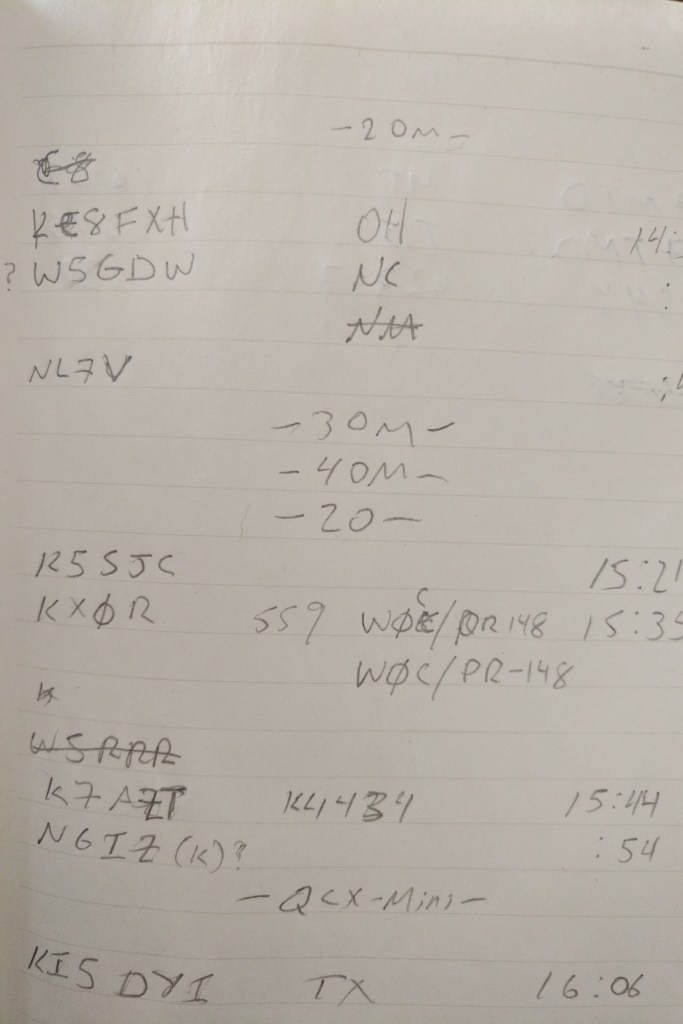 -20M-
KE8FXH OH 14:
? W5GDW NC :
NM
NL7V
-30M-
-40M-
-20-
K5SJC 15:21
KXØR 559 WØC/PR148 15:35
WØC/PR-148
K
W5RRR
K7AZT K4434 15:44
N6IZ(K)? :54
-QCX-Mini-
KI5DYI TX 16:06